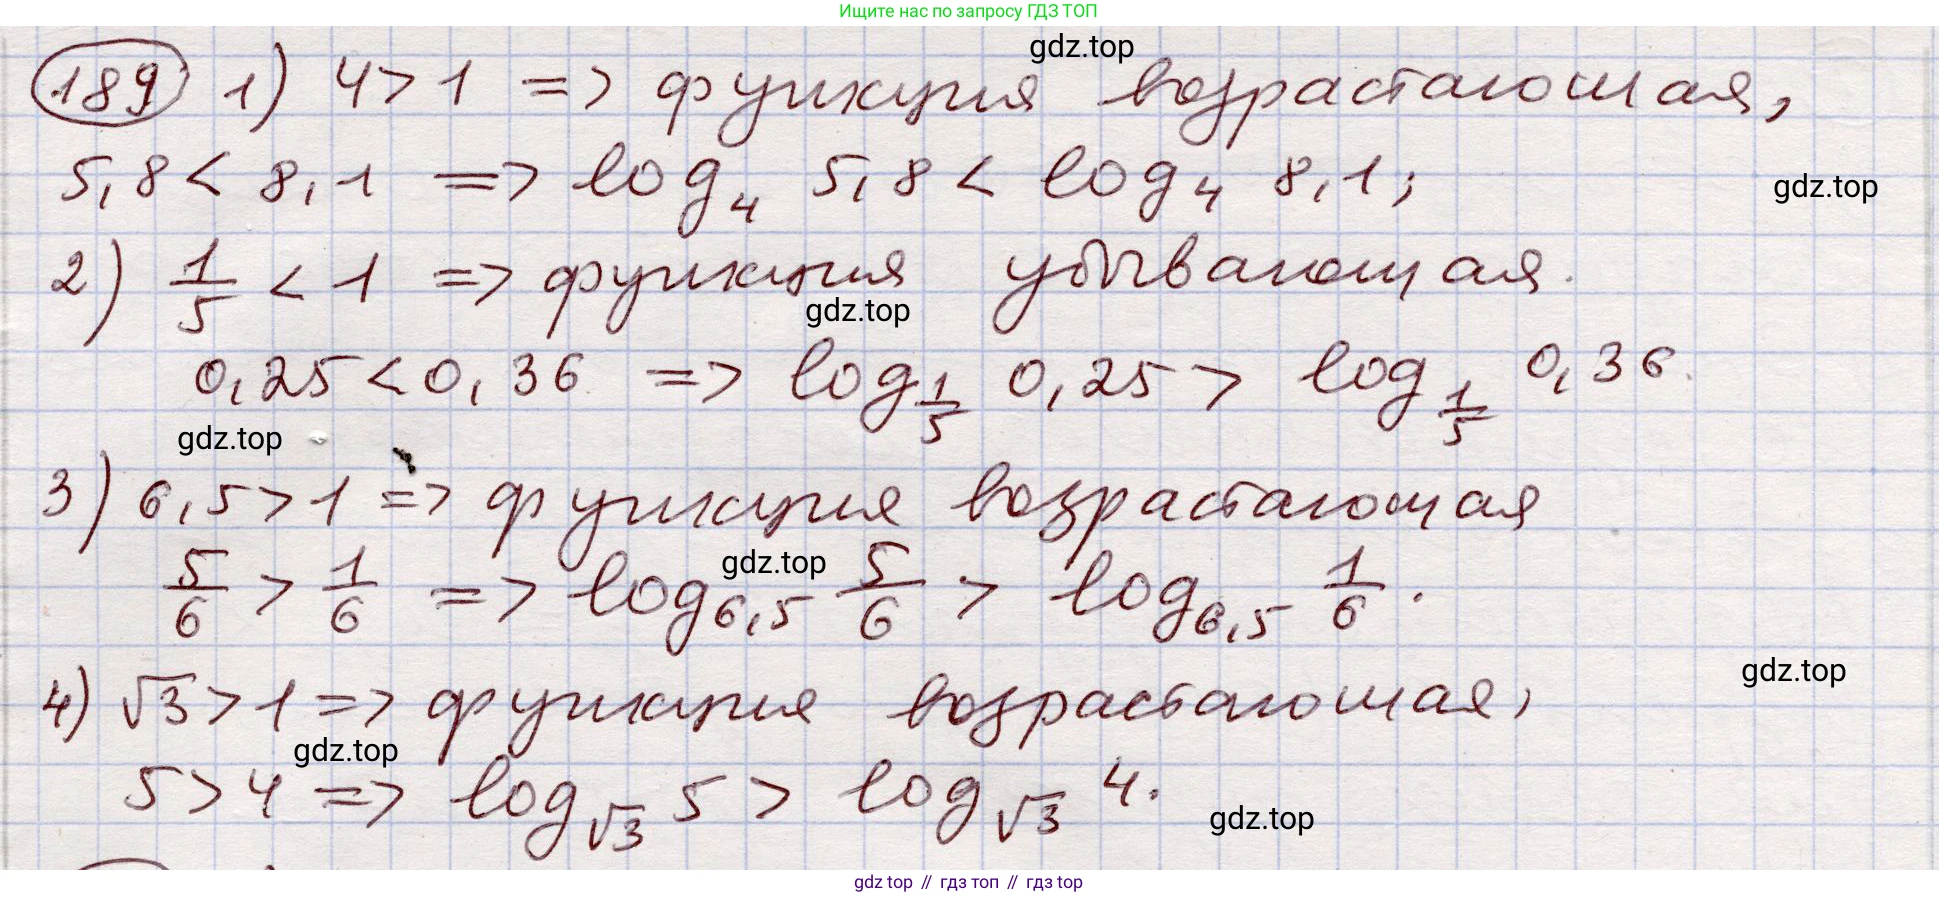 Ищите нас по запросу ГДЗ ТОП
gdz.top
189 1) 4 > 1 => функция возрастающая,
5,8 < 8,1 => log₄ 5,8 < log₄ 8,1;
gdz.top
2) 1/5 < 1 => функция убывающая.
gdz.top
0,25 < 0,36 => log_{1/5} 0,25 > log_{1/5} 0,36.
gdz.top
3) 6,5 > 1 => функция возрастающая
gdz.top
5/6 > 1/6 => log_{6,5} 5/6 > log_{6,5} 1/6.
gdz.top
4) √3 > 1 => функция возрастающая,
gdz.top
5 > 4 => log_{√3} 5 > log_{√3} 4.
gdz.top
gdz top // гдз топ // gdz top